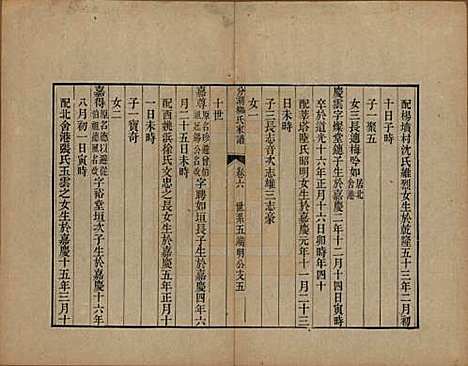 配楊墳村沈氏維烈女生於乾隆五十三年二月初
十日子時
子一聚五
女三長適梅吟如居北舍港
慶雲字燦堂總子生於嘉慶二年十二月十四日寅時
卒於道光十六年正月十六日卯時年四十
配莘塔陸氏昭明女生於嘉慶元年十一月二十三
日未時
子三長志音次志雄三志豪
女一
分湖柳氏家譜 卷六 世系五
十世
嘉尊 字聘如垣長子生於嘉慶四年六
月二十五日未時
配西 浜徐氏文忠之長女生於嘉慶五年正月十
一日未時
子一寶奇
女二
嘉得 字裕堂垣次子生於嘉慶十六年
八月初一日寅時
配北舍港張氏玉雲之女生於嘉慶十五年三月十